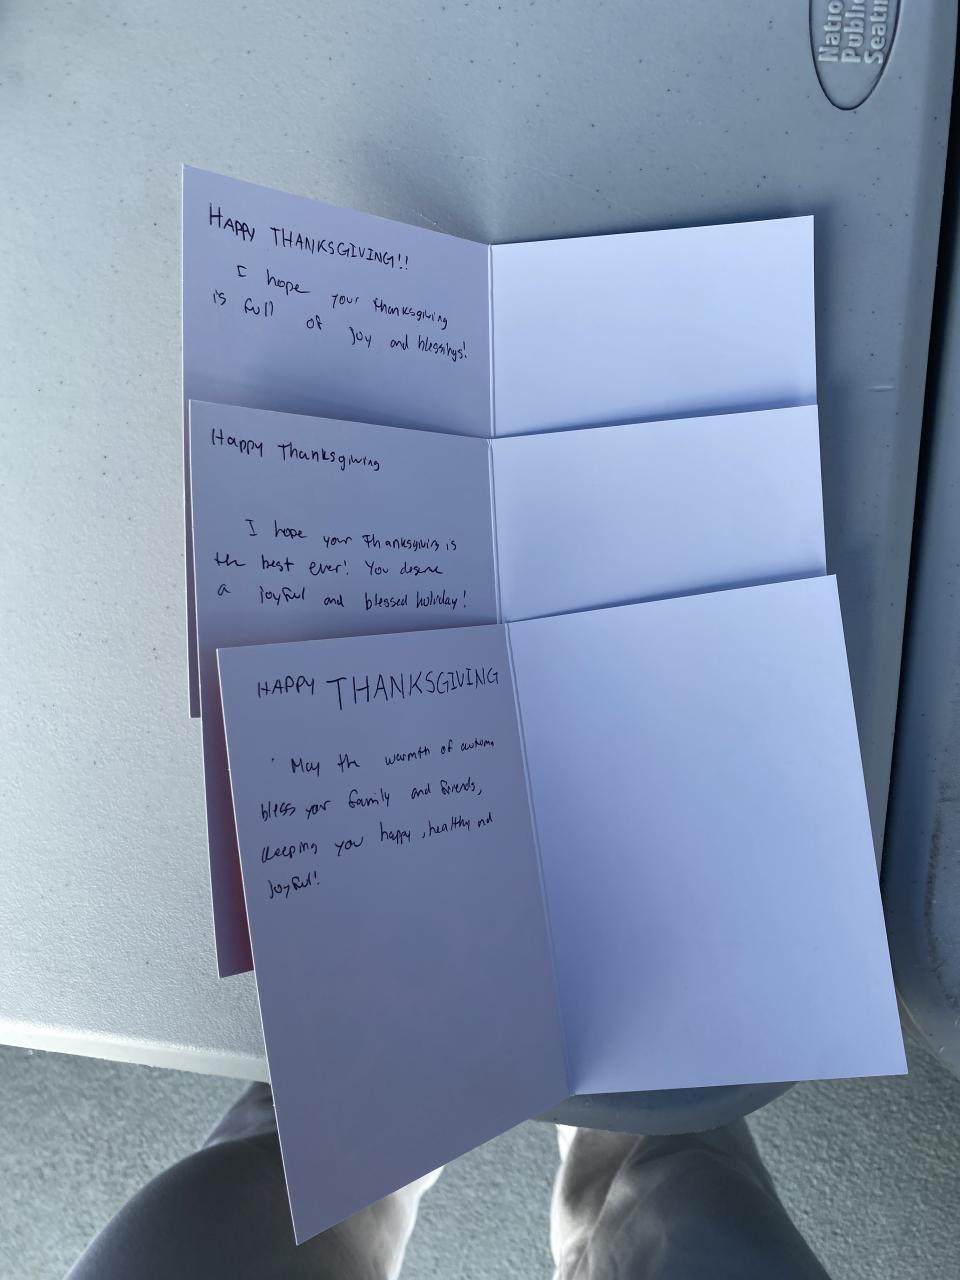 Natio
Public
Seatin
HAPPY THANKSGIVING!!
I hope your thanksgiving
is full of joy and blessings!
Happy Thanksgiving
I hope your thanksgiving is
the best ever! You deserve
a joyful and blessed holiday!
HAPPY THANKSGIVING
May the warmth of autumn
bless your family and friends,
keeping you happy, healthy and
joyful!